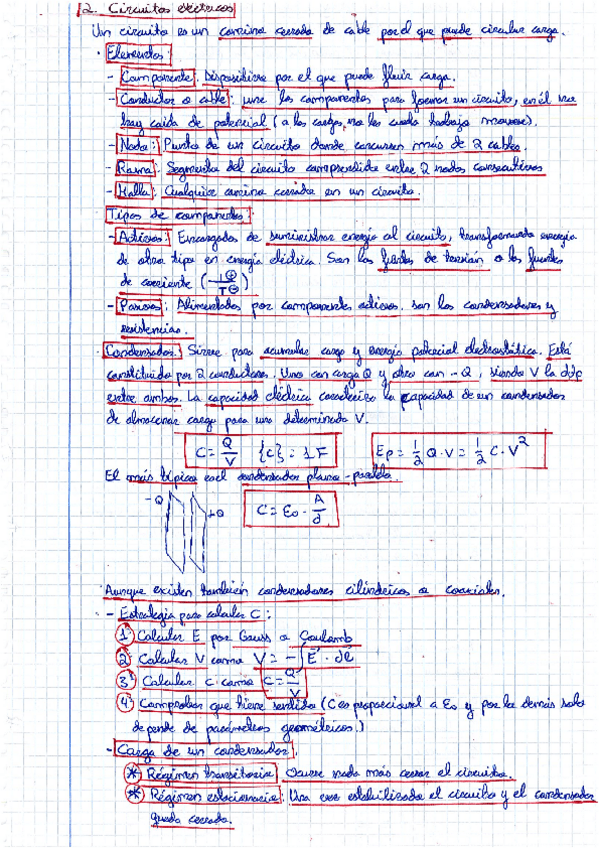 2. Circuitos eléctricos
Un circuito es un camino cerrado de cable por el que puede circular carga.
· Elementos:
- Componente: Dispositivo por el que puede fluir carga.
- Conductor o cable: une los componentes para formar un circuito, en él no
hay caída de potencial (a las cargas no les cuesta trabajo moverse).
- Nodo: Punto de un circuito donde concurren más de 2 cables.
- Rama: Segmento del circuito comprendido entre 2 nodos consecutivos
- Malla: Cualquier camino cerrado en un circuito.
Tipos de componentes:
- Activos: Encargados de suministrar energía al circuito, transformando energía
de otro tipo en energía eléctrica. Son las fuentes de tensión o las fuentes
de corriente (
- Pasivos: Alimentados por componentes activos. son los condensadores y
resistencias.
· Condensador: Sirve para acumular carga y energía potencial electrostática. Está
constituido por 2 conductores. Uno con carga Q y otro con -Q, siendo V la ddp
entre ambos. La capacidad eléctrica caracteriza la capacidad de un condensador
de almacenar carga para una determinada V.
C = Q/V {C} = 1F Ep = 1/2 Q·V = 1/2 C·V²
El más típico es el condensador plano-paralelo.
-Q +Q C = ε₀ · A/d
Aunque existen también condensadores cilíndricos o coaxiales.
- Estrategia para calcular C:
1º Calcular E por Gauss o Coulomb
2º Calcular V como V = -∫E · dl
3º Calcular C como C = Q/V
4º Comprobar que tiene sentido (C es proporcional a ε₀ y por lo demás solo
depende de parámetros geométricos.)
- Carga de un condensador:
* Régimen transitorio: Ocurre nada más cerrar el circuito.
* Régimen estacionario: Una vez estabilizado el circuito y el condensador
queda cerrado.